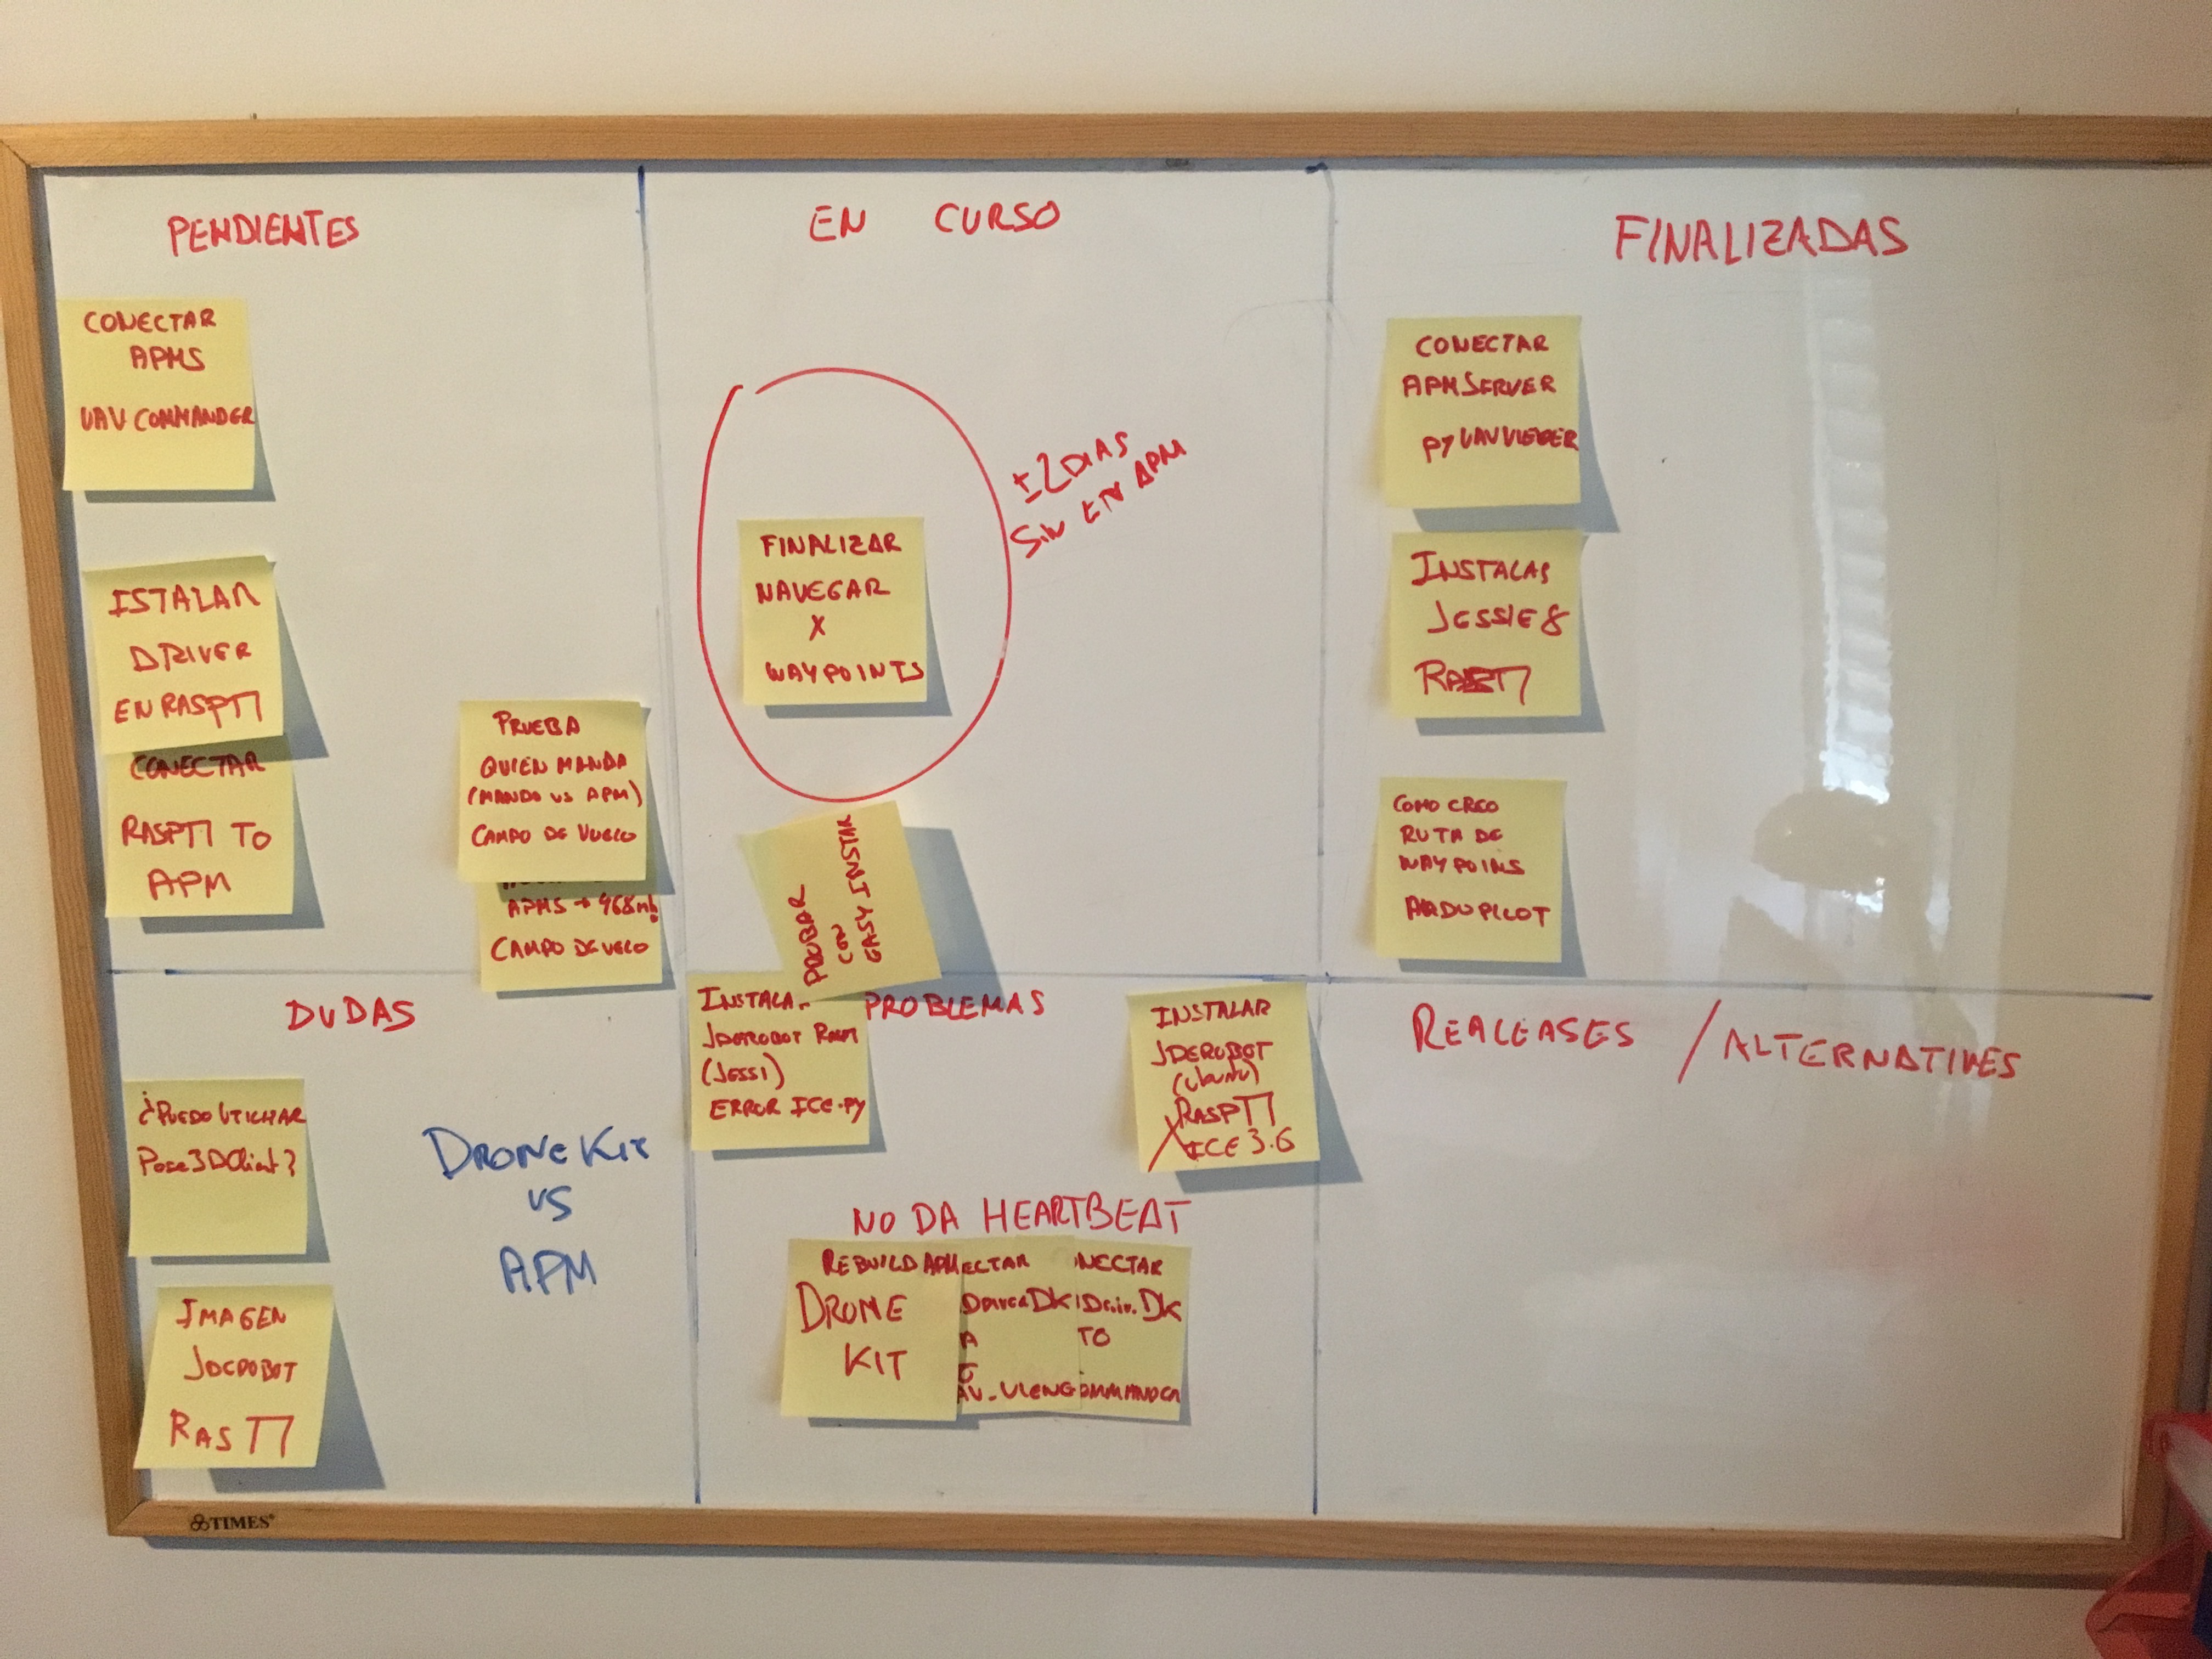 PENDIENTES
CONECTAR
APMS
UAV COMMANDER
ISTALAR
DRIVER
EN RASPΠ
CONECTAR
RASPΠ TO
APM
PRUEBA
QUIEN MANDA
(MANDO VS APM)
CAMPO DE VUELO
APMS → 468mh
CAMPO DE VUELO
EN CURSO
FINALIZAR
NAVEGAR
X
WAYPOINTS
±2 DIAS
SIN APM
PROBAR
CON
EASY INSTAR
FINALIZADAS
CONECTAR
APMSERVER
PY UAVVIEWER
INSTALAS
JESSIE 8
RASΠ
COMO CREO
RUTA DE
WAYPOINS
ARDUPILOT
DUDAS
¿PUEDO UTILIZAR
Pose3DClient?
IMAGEN
JDEROBOT
RASΠ
DRONE KIT
VS
APM
PROBLEMAS
INSTALA
JDEROBOT
(JESSI)
ERROR ICE.PY
INSTALAR
JDEROBOT
(Ubuntu)
RASPΠ
ICE 3.6
NO DA HEARTBEAT
REBUILD APM
DRONE
KIT
ECTAR
DK
A
NECTAR
DK
TO
REALEASES / ALTERNATIVES
TIMES